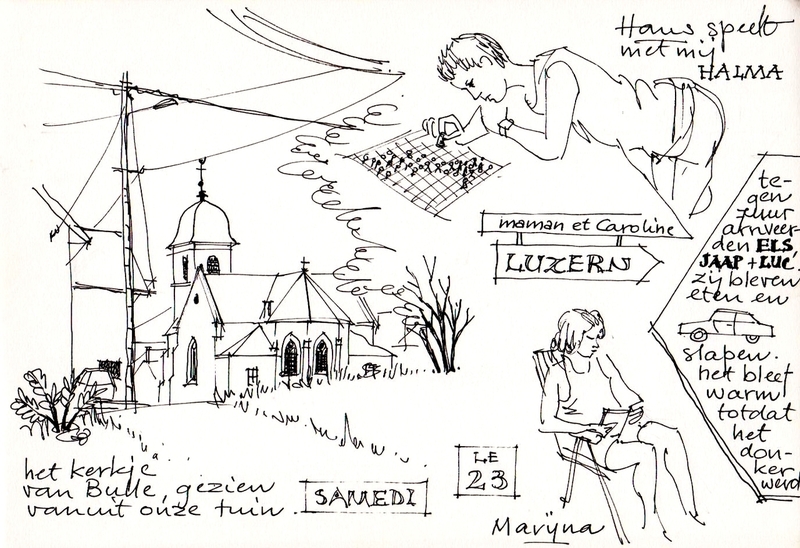 Hans speelt
met mij
HALMA
maman et Caroline
LUZERN
te-
gen
7 uur
arriveer-
den ELS,
JAAP + LUC.
zij bleven
eten en
slapen.
het bleef
warm
totdat
het
don-
ker
werd
het kerkje
van Bulle, gezien
vanuit onze tuin.
SAMEDI
LE
23
Marijna